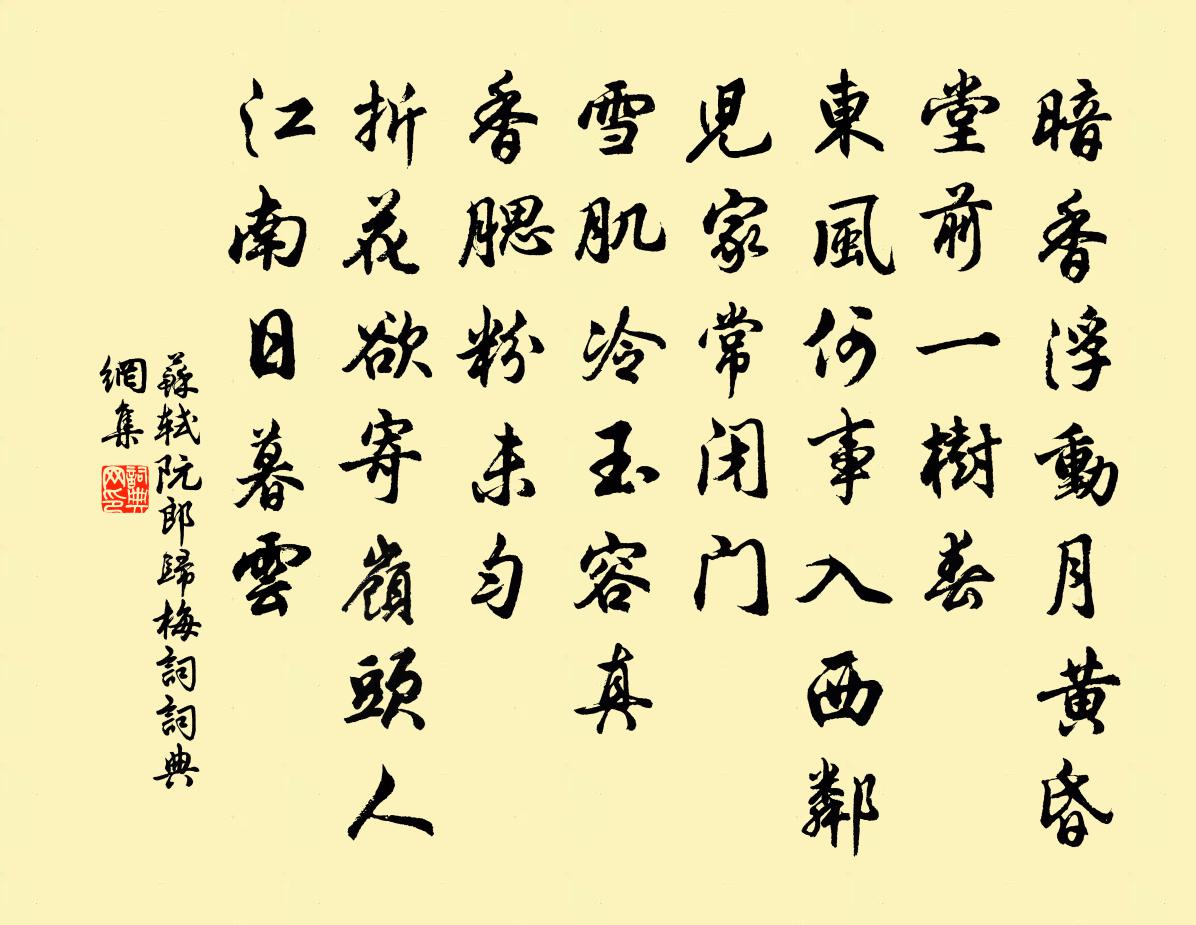 暗香浮動月黄昏
堂前一樹春
東風何事入西鄰
児家常閉門
雪肌冷玉容真
香腮粉未匀
折花欲寄嶺頭人
江南日暮雲
蘇軾阮郎歸梅詞詞典
網集
詞典
网印